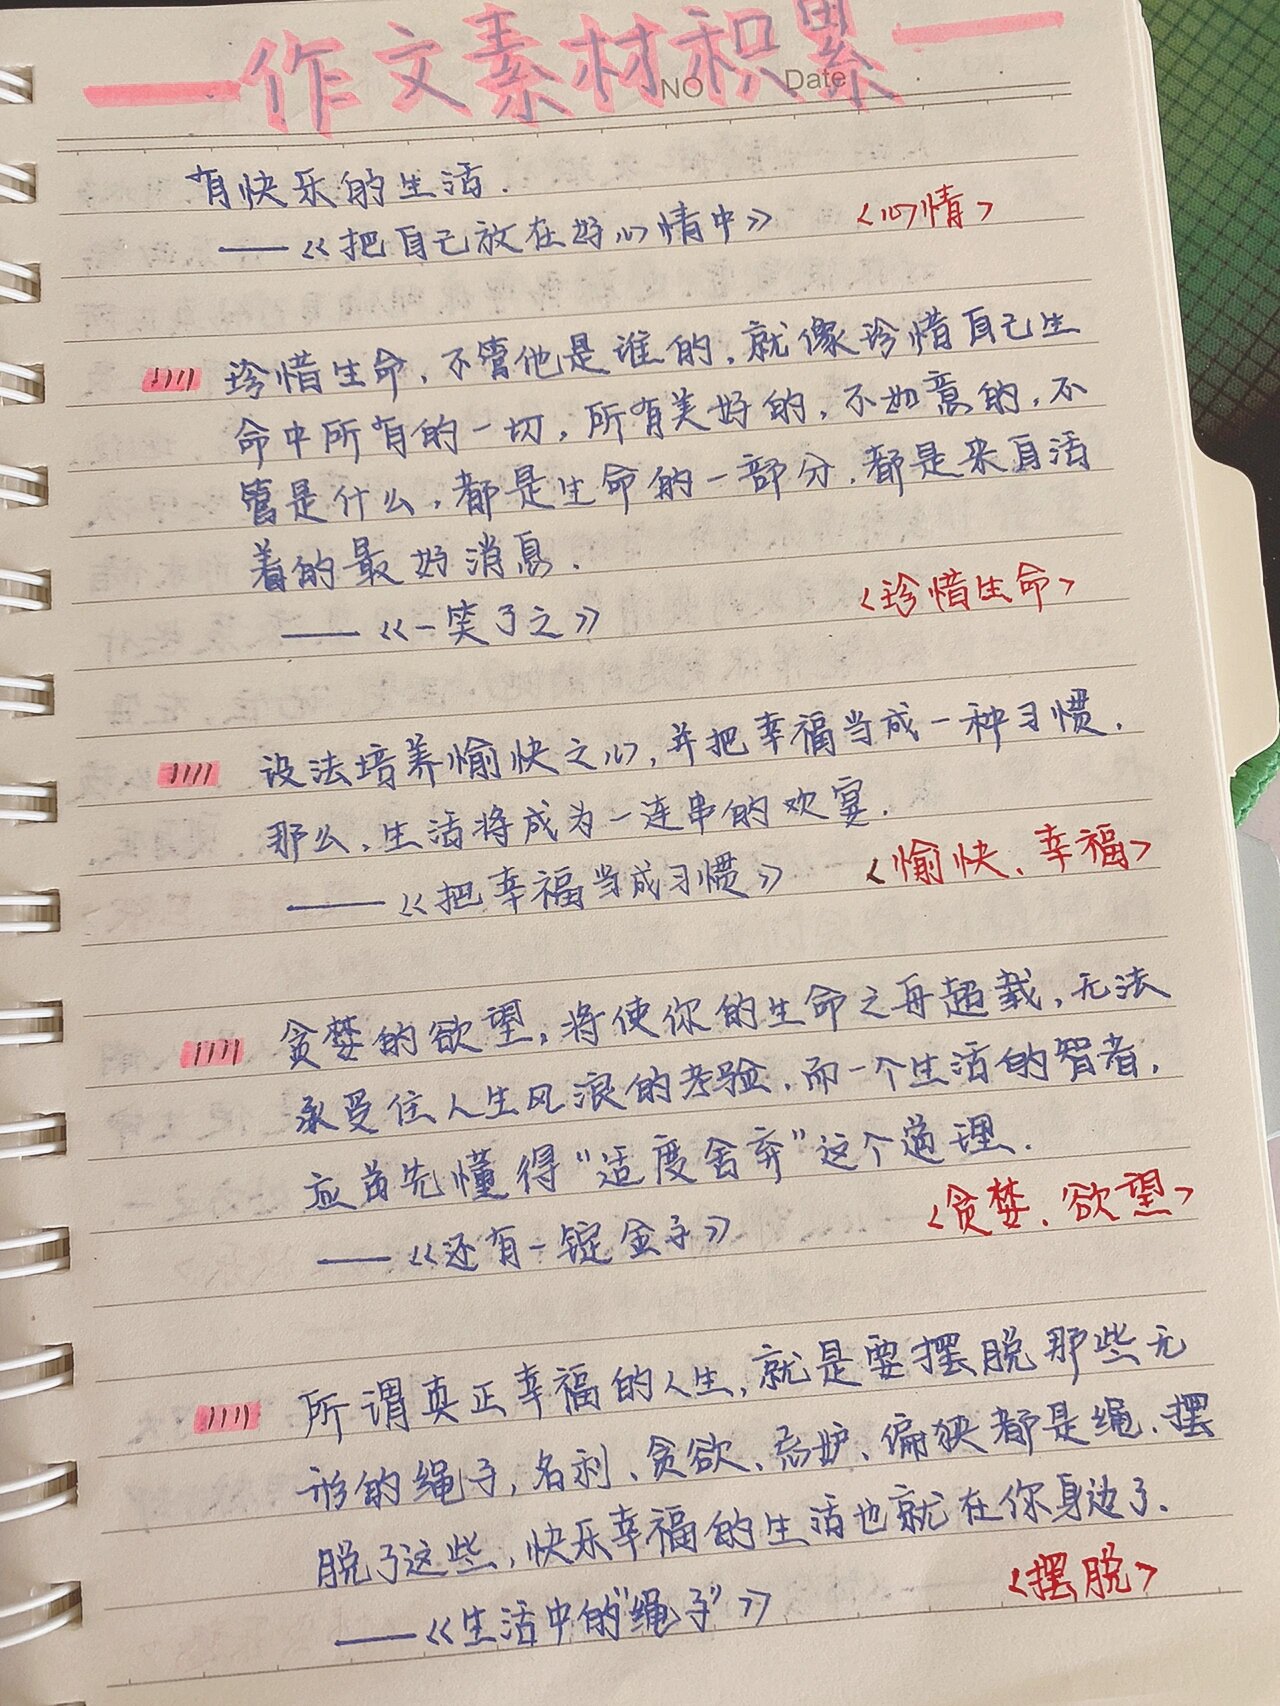 作文素材积累
NO. Date
有快乐的生活.
——《把自己放在好心情中》 <心情>
珍惜生命，不管他是谁的，就像珍惜自己生
命中所有的一切，所有美好的，不如意的，不
管是什么，都是生命的一部分，都是来自活
着的最好消息.
——《一笑了之》 <珍惜生命>
设法培养愉快之心，并把幸福当成一种习惯.
那么，生活将成为一连串的欢宴.
——《把幸福当成习惯》 <愉快、幸福>
贪婪的欲望，将使你的生命之舟超载，无法
承受住人生风浪的考验，而一个生活的智者，
应首先懂得“适度舍弃”这个道理.
——《还有一锭金子》 <贪婪、欲望>
所谓真正幸福的人生，就是要摆脱那些无
形的绳子，名利、贪欲、忌妒、偏狭都是绳、摆
脱了这些，快乐幸福的生活也就在你身边了.
——《生活中的“绳子”》 <摆脱>